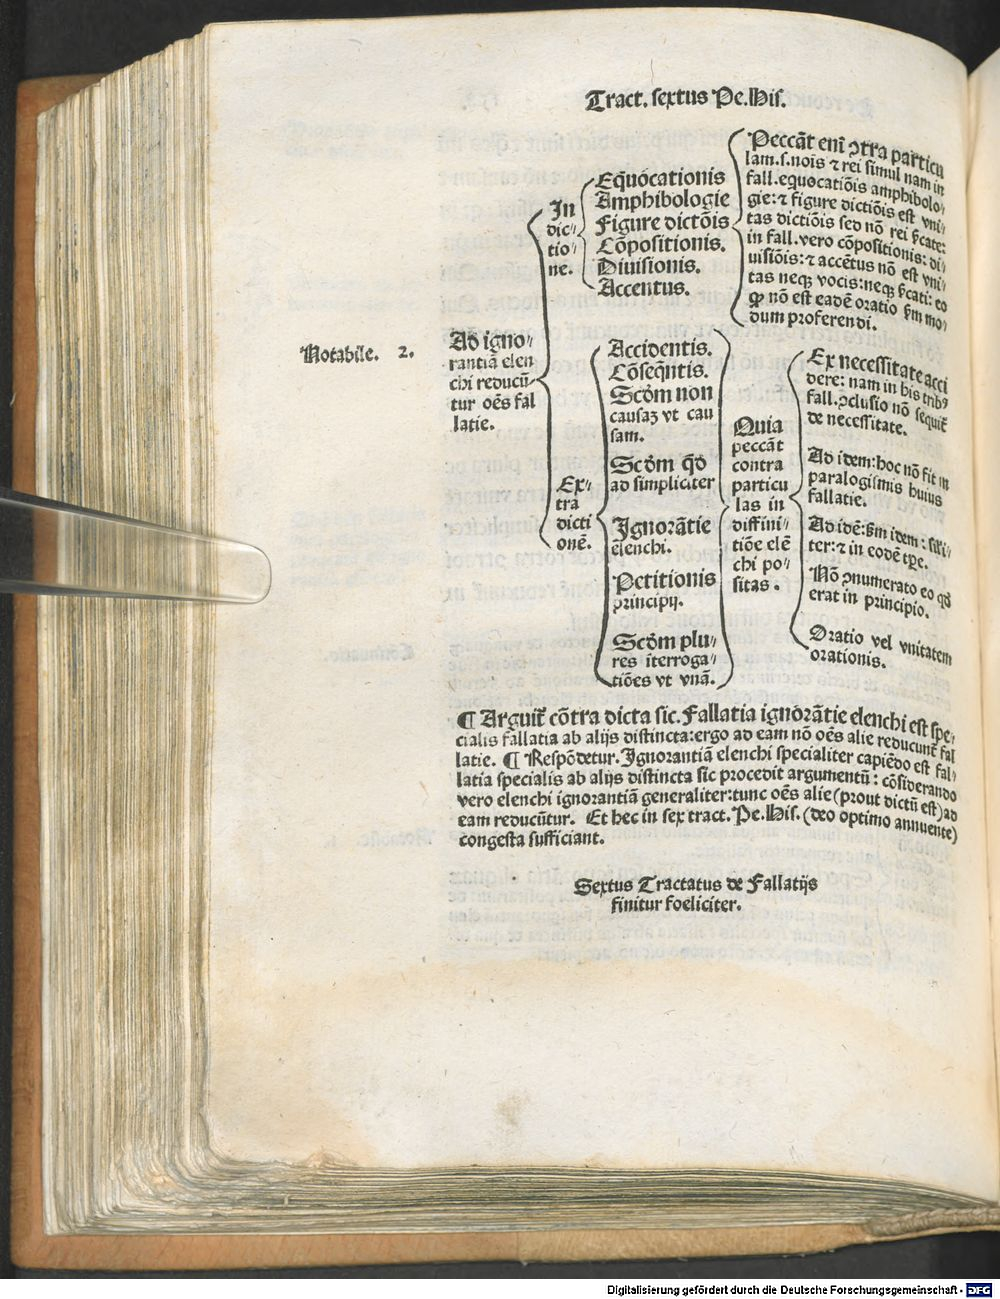 Tract. sextus Pe.His.
Notabile. 2.
Ad igno⸗
rantiā elen
chi reducū⸗
tur oēs fal
latie.
In
dic⸗
tio⸗
ne.
Equocationis
Amphibologie
Figure dictōis
Cōpositionis.
Diuisionis.
Accentus.
Peccāt eni ꝯtra particu
lam.s.nois ⁊ rei simul nam in
fall.equocatiōis amphibolo⸗
gie:⁊ figure dictiōis est vni⸗
tas dictiōis sed nō rei ſcate:
in fall.vero cōpositionis: di⸗
uisiōis:⁊ accētus nō est vni⸗
tas neqȝ vocis:neqȝ ſcati: eo
ꝙ nō est eadē oratio ſm mo⸗
dum proferendi.
Ex⸗
tra
dicti
onē.
Accidentis.
Cōseqntis.
Scdm non
causaȝ vt cau
sam.
Scdm qd
ad simpliciter
Ignorātie
elenchi.
Petitionis
principij.
Scdm plu⸗
res iterroga⸗
tiōes vt vnā.
Quia
peccāt
contra
particu
las in
diffini⸗
tiōe elē
chi po⸗
sitas.
Ex necessitate acci
dere: nam in his tribꝰ
fall.ꝯclusio nō sequit̄
de necessitate.
Ad idem:hoc nō fit in
paralogismis huius
fallatie.
Ad idē:ſm idem: sili⸗
ter:⁊ in eodē tꝑe.
Nō ꝯnumerato eo qd
erat in principio.
Oratio vel vnitatem
orationis.
¶ Arguit̄ cōtra dicta sic. Fallatia ignorātie elenchi est spe⸗
cialis fallatia ab alijs distincta:ergo ad eam nō oēs alie reducunt̄ fal
latie. ¶ Respōdetur. Ignorantiā elenchi specialiter capiēdo est fal⸗
latia specialis ab alijs distincta sic procedit argumentū: cōsiderando
vero elenchi ignorantiā generaliter:tunc oēs alie (prout dictū est) ad
eam reducūtur. Et hec in sex tract. Pe.His. (deo optimo annuente)
congesta sufficiant.
Sextus Tractatus de Fallatijs
finitur foeliciter.
Digitalisierung gefördert durch die Deutsche Forschungsgemeinschaft - DFG